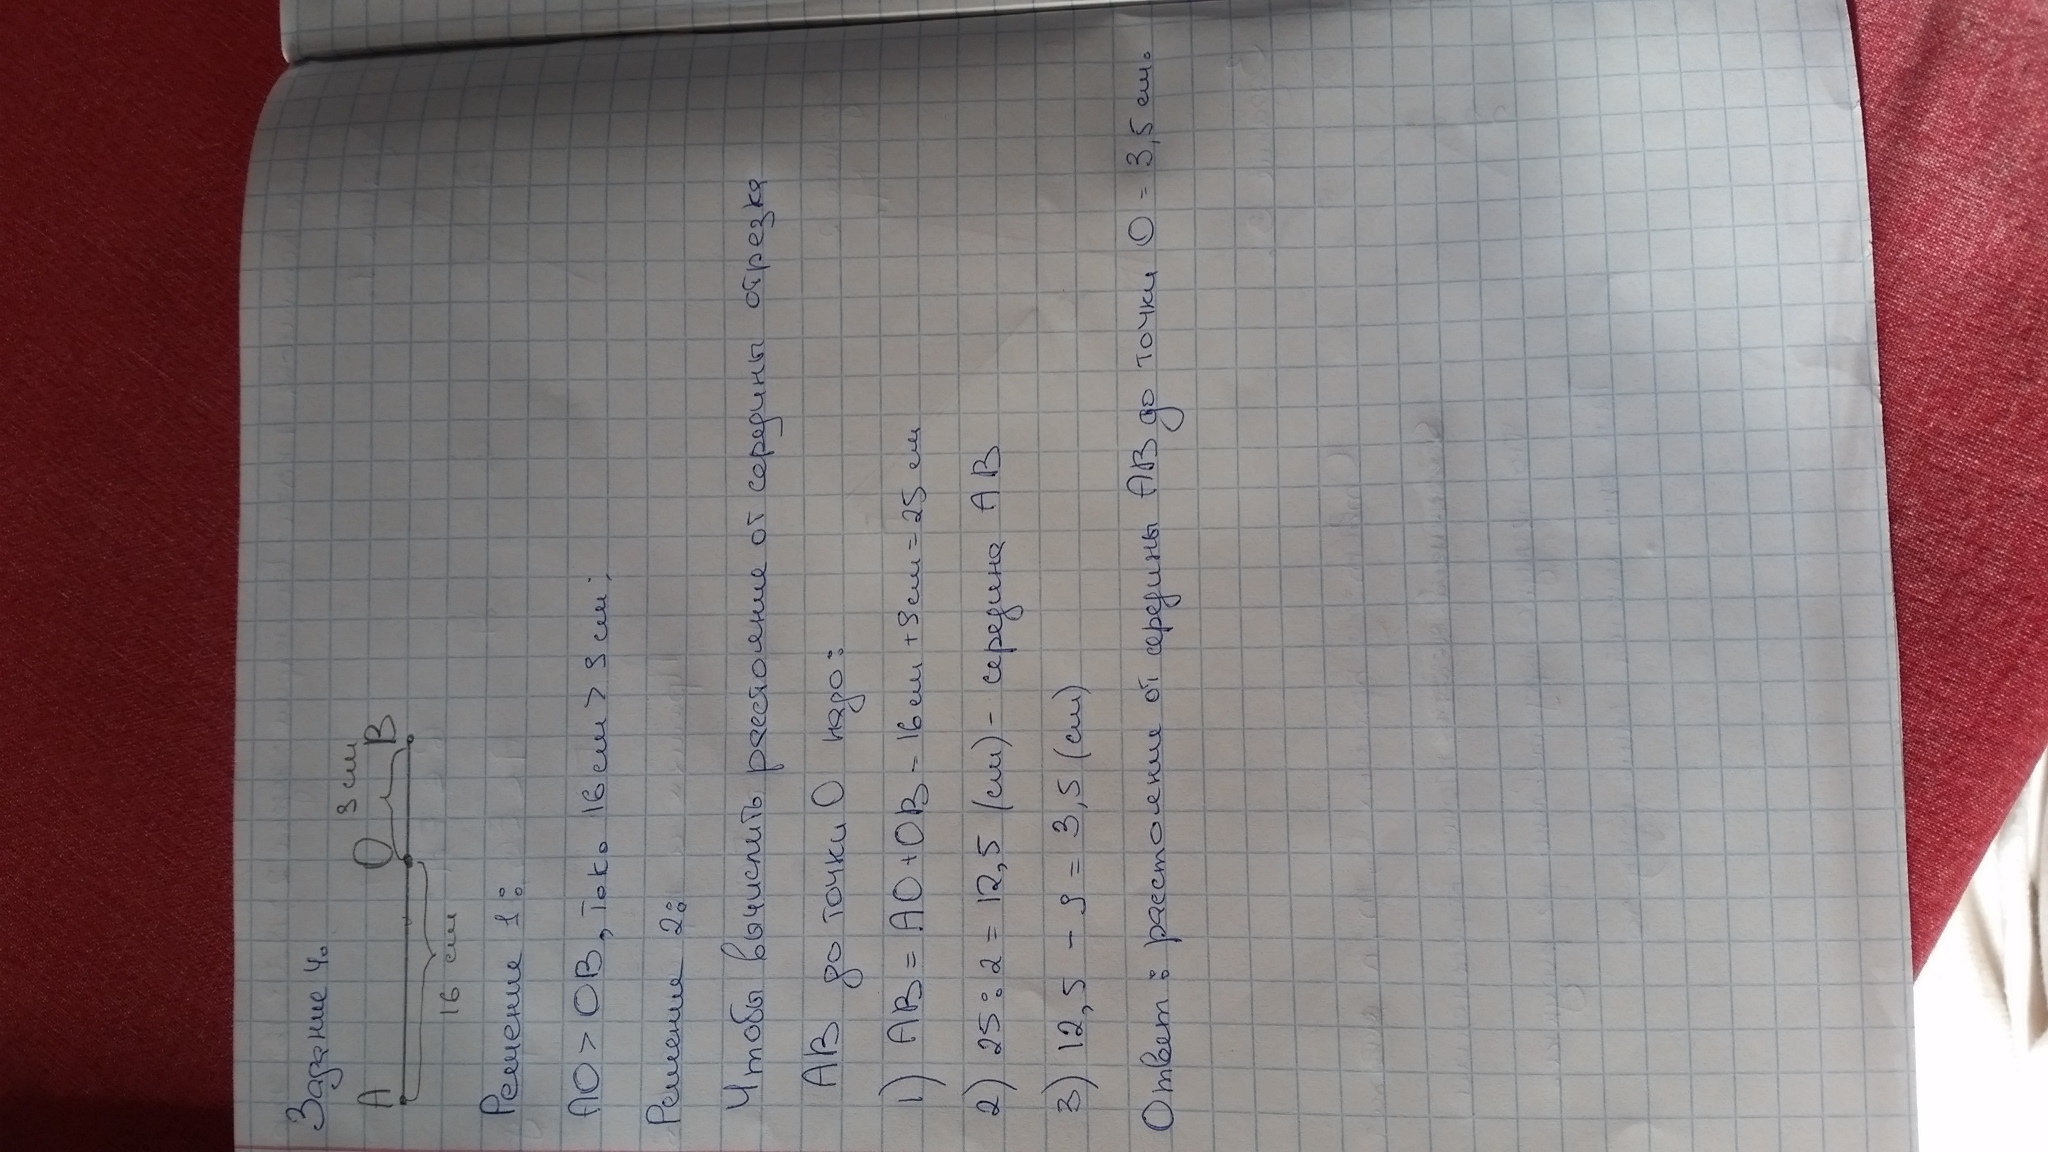 Задание 4.
A O 9 см B
16 см
Решение 1:
AO > OB, т.к. 16 см > 9 см.
Решение 2:
Чтобы вычислить расстояние от середины отрезка
AB до точки O надо:
1) AB = AO + OB = 16 см + 9 см = 25 см
2) 25 : 2 = 12,5 (см) - середина AB
3) 12,5 - 9 = 3,5 (см)
Ответ: расстояние от середины AB до точки O = 3,5 см.